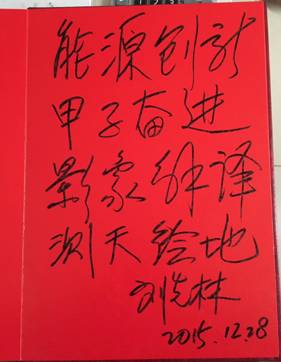 能源创新
甲子奋进
影象解译
测天绘地
刘先林
2015.12.28